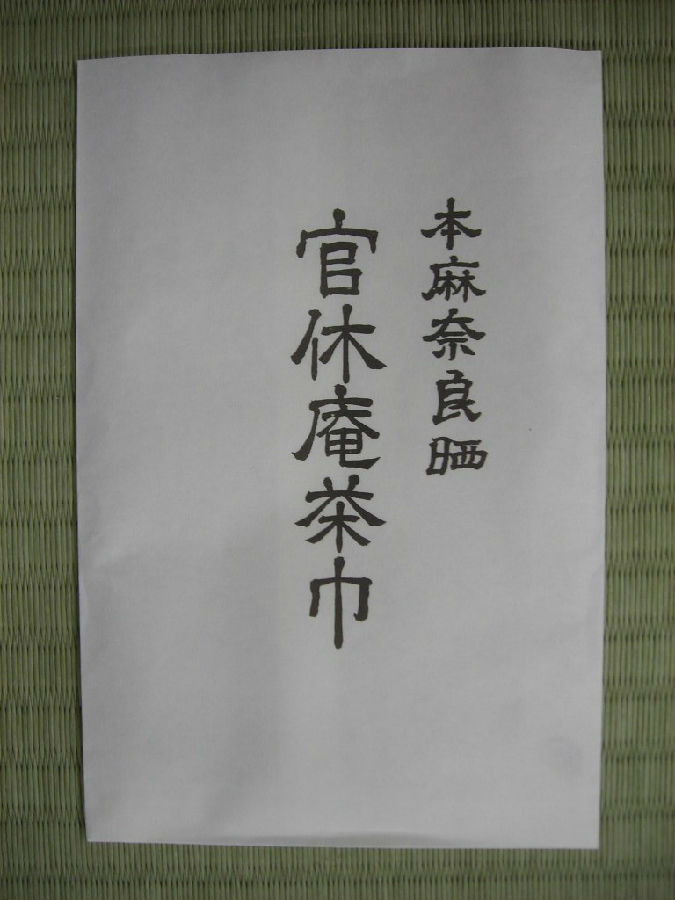 本麻奈良晒
官休庵茶巾